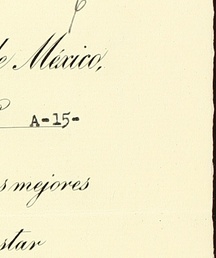 de México,
A-15-
s mejores
star